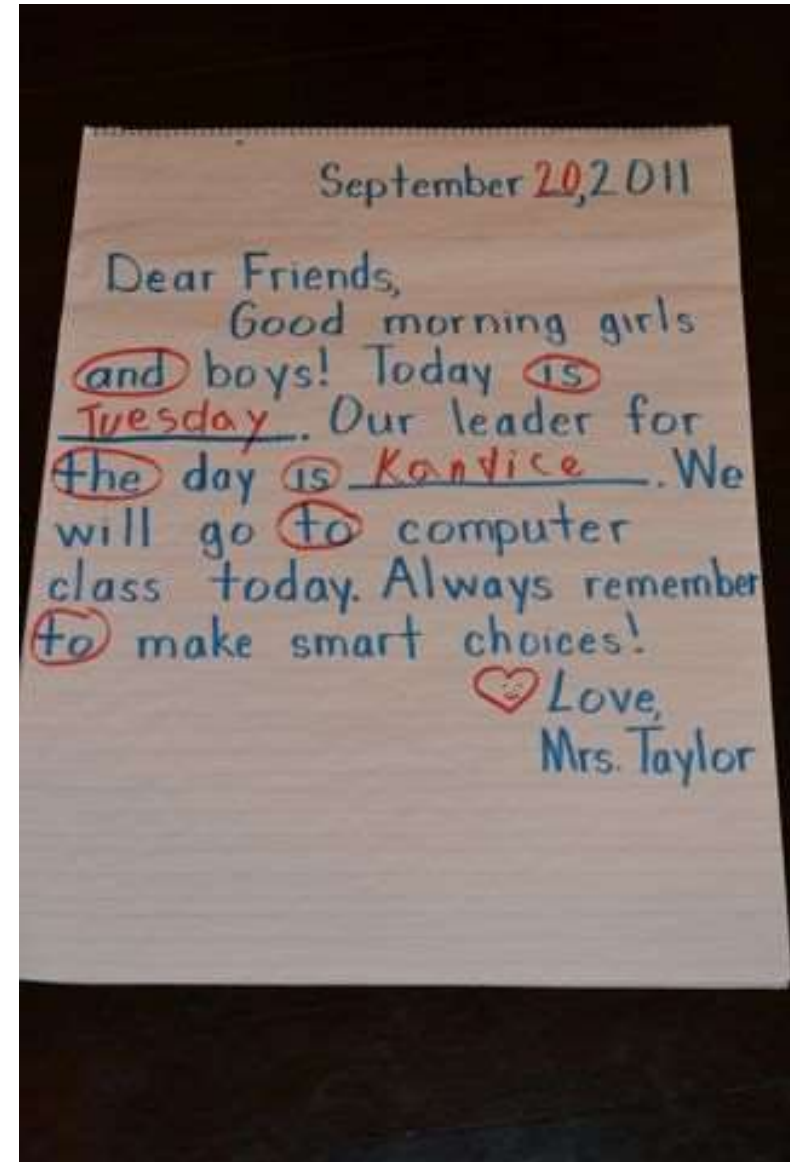 September 20, 2011
Dear Friends,
Good morning girls
and boys! Today is
Tuesday. Our leader for
the day is Kandice. We
will go to computer
class today. Always remember
to make smart choices!
Love,
Mrs. Taylor